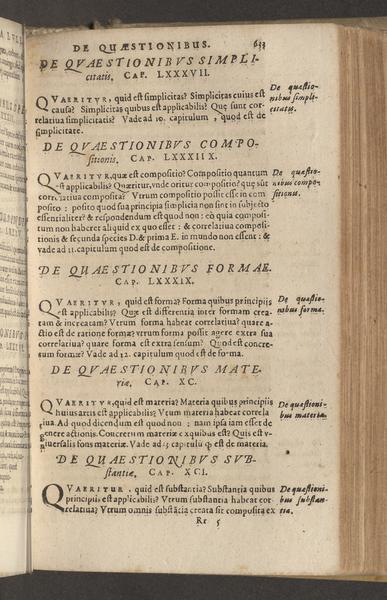 DE QUÆSTIONIBUS. 633
DE QVAESTIONIBVS SIMPLI-
citatis. CAP. LXXXVII.
De quæstio-
nibus simpli-
citatis.
QVAERITVR, quid est simplicitas? Simplicitas cuius est
causa? Simplicitas quibus est applicabilis? Quę sunt cor-
relatiua simplicitatis? Vade ad 10. capitulum, quod est de
simplicitate.
DE QVAESTIONIBVS COMPO-
sitionis. CAP. LXXXIIX.
De quæstio-
nibus compo-
sitionis.
QVAERITVR, quæ est compositio? Compositio quantum
est applicabilis? Quæritur, vnde oritur compositio? quę sūt
correlatiua compositæ? Vtrum compositio possit esse in com-
posito: posito quod sua principia simplicia non sint in subiecto
essentialiter? & respondendum est quod non: eò quia composi-
tum non haberet aliquid ex quo esset: & correlatiua composi-
tionis & secunda species D. & prima E. in mundo non essent: &
vade ad 11. capitulum quod est de compositione.
DE QUAESTIONIBVS FORMAE.
CAP. LXXXIX.
De quæstio-
nibus formæ.
QVAERITVR, quid est forma? Forma quibus principiis
est applicabilis? Quæ est differentia inter formam crea-
tam & increatam? Vtrum forma habeat correlatiua? quare a-
ctio est de ratione formæ? vtrum forma possit agere extra sua
correlatiua? quare forma est extra sensum? Quod est concre-
sum formæ? Vade ad 12. capitulum quod est de forma.
DE QUAESTIONIBVS MATE-
riæ, CAP. XC.
De quæstioni-
bus materiæ.
QVAERITVR, quid est materia? Materia quibus principiis
huius artis est applicabilis? Vtrum materia habeat correla-
tiua. Ad quod dicendum est quod non: nam ipsa iam esset de
genere actionis. Concretum materiæ ex quibus est? Quis est v-
niuersalis fons materiæ. Vade ad 13 capitulū q̃ est de materia.
DE QUAESTIONIBVS SVB-
stantiæ, CAP. XCI.
De quæstioni-
bus substan-
tiæ.
QVAERITUR, quid est substantia? Substantia quibus
principiis est applicabilis? Vtrum substantia habeat cor-
relatiua? Vtrum omnis substātia creata sit composita ex
Rr 5